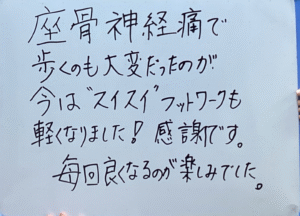 座骨神経痛で
歩くのも大変だったのが
今は"スイスイ"フットワークも
軽くなりました！感謝です。
毎回良くなるのが楽しみでした。